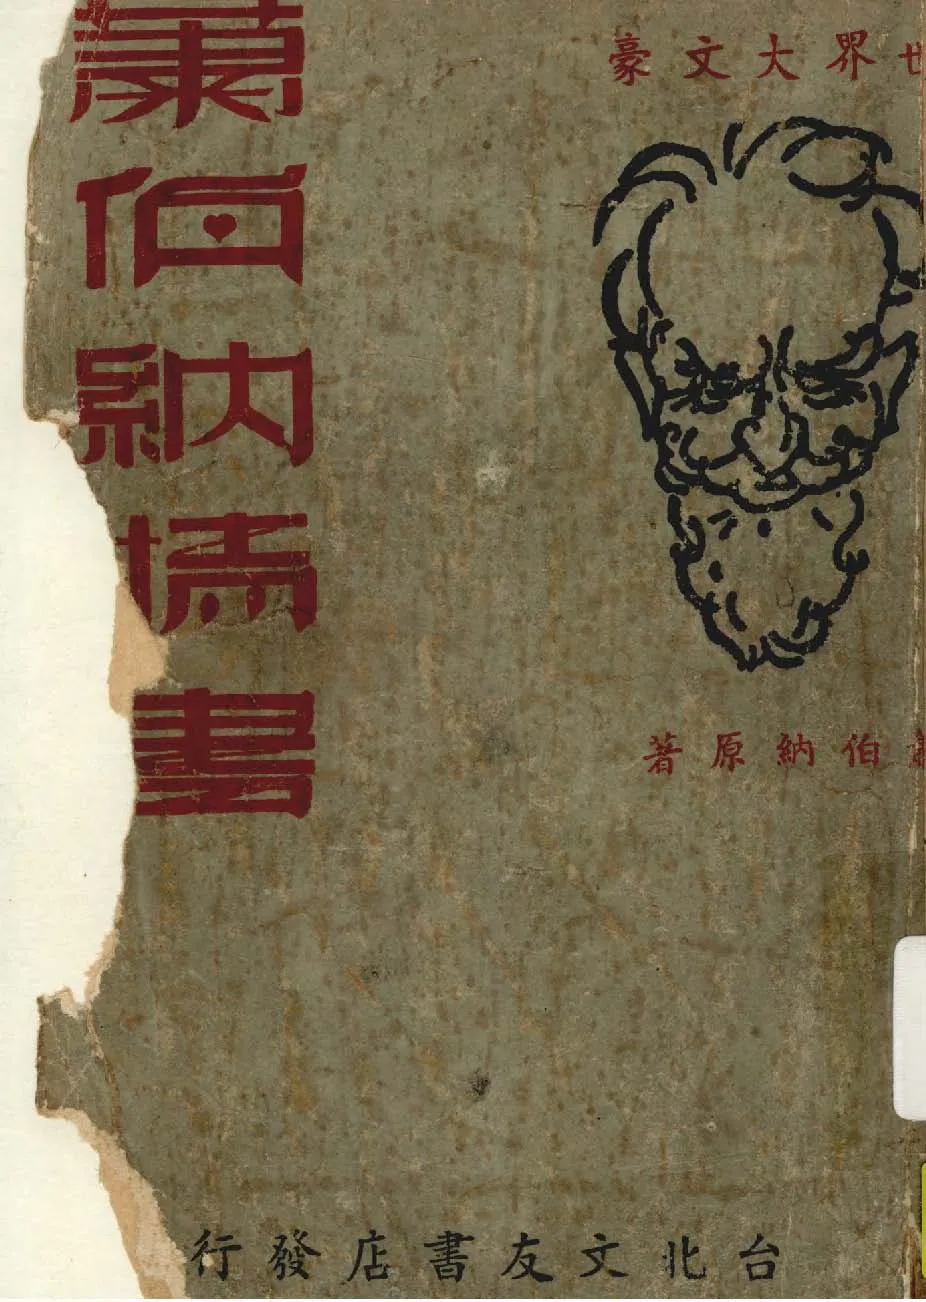 世界大文豪
蕭伯納情書
蕭伯納原著
台北文友書店發行